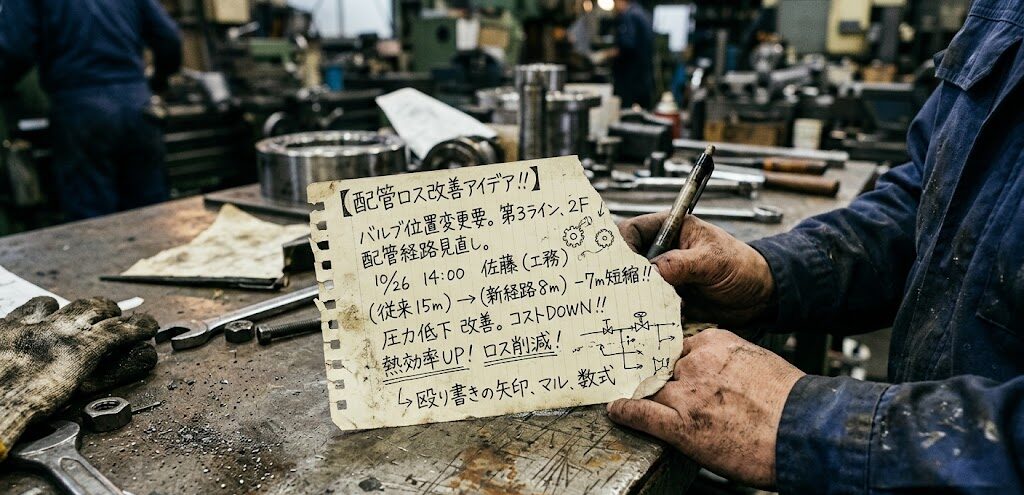 【配管ロス改善アイデア!!】
バルブ位置変更要。第3ライン、2F
配管経路見直し。
10/26 14:00 佐藤(工務)
(従来15m)→(新経路8m) -7m短縮!!
圧力低下 改善。コストDOWN!!
熱効率UP! ロス削減!
↳殴り書きの矢印、マル、数式